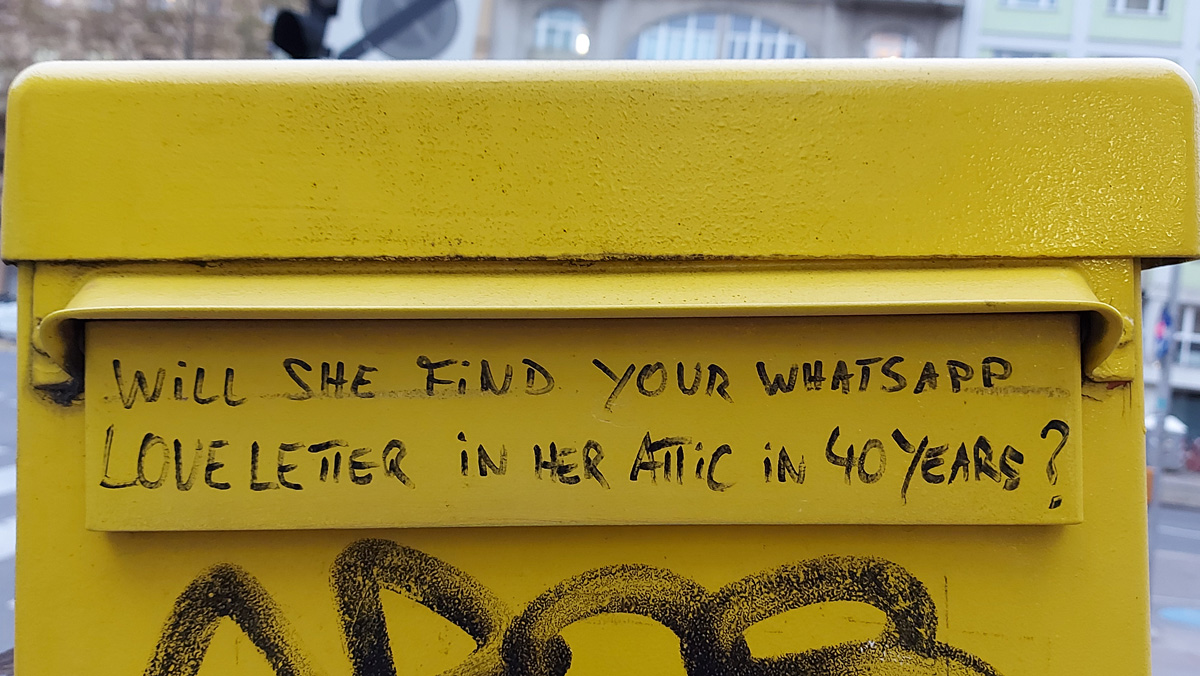 WiLL SHE FiND YOUR WHATSAPP
LOVELETTER iN HER ATTiC iN 40 YEARS?